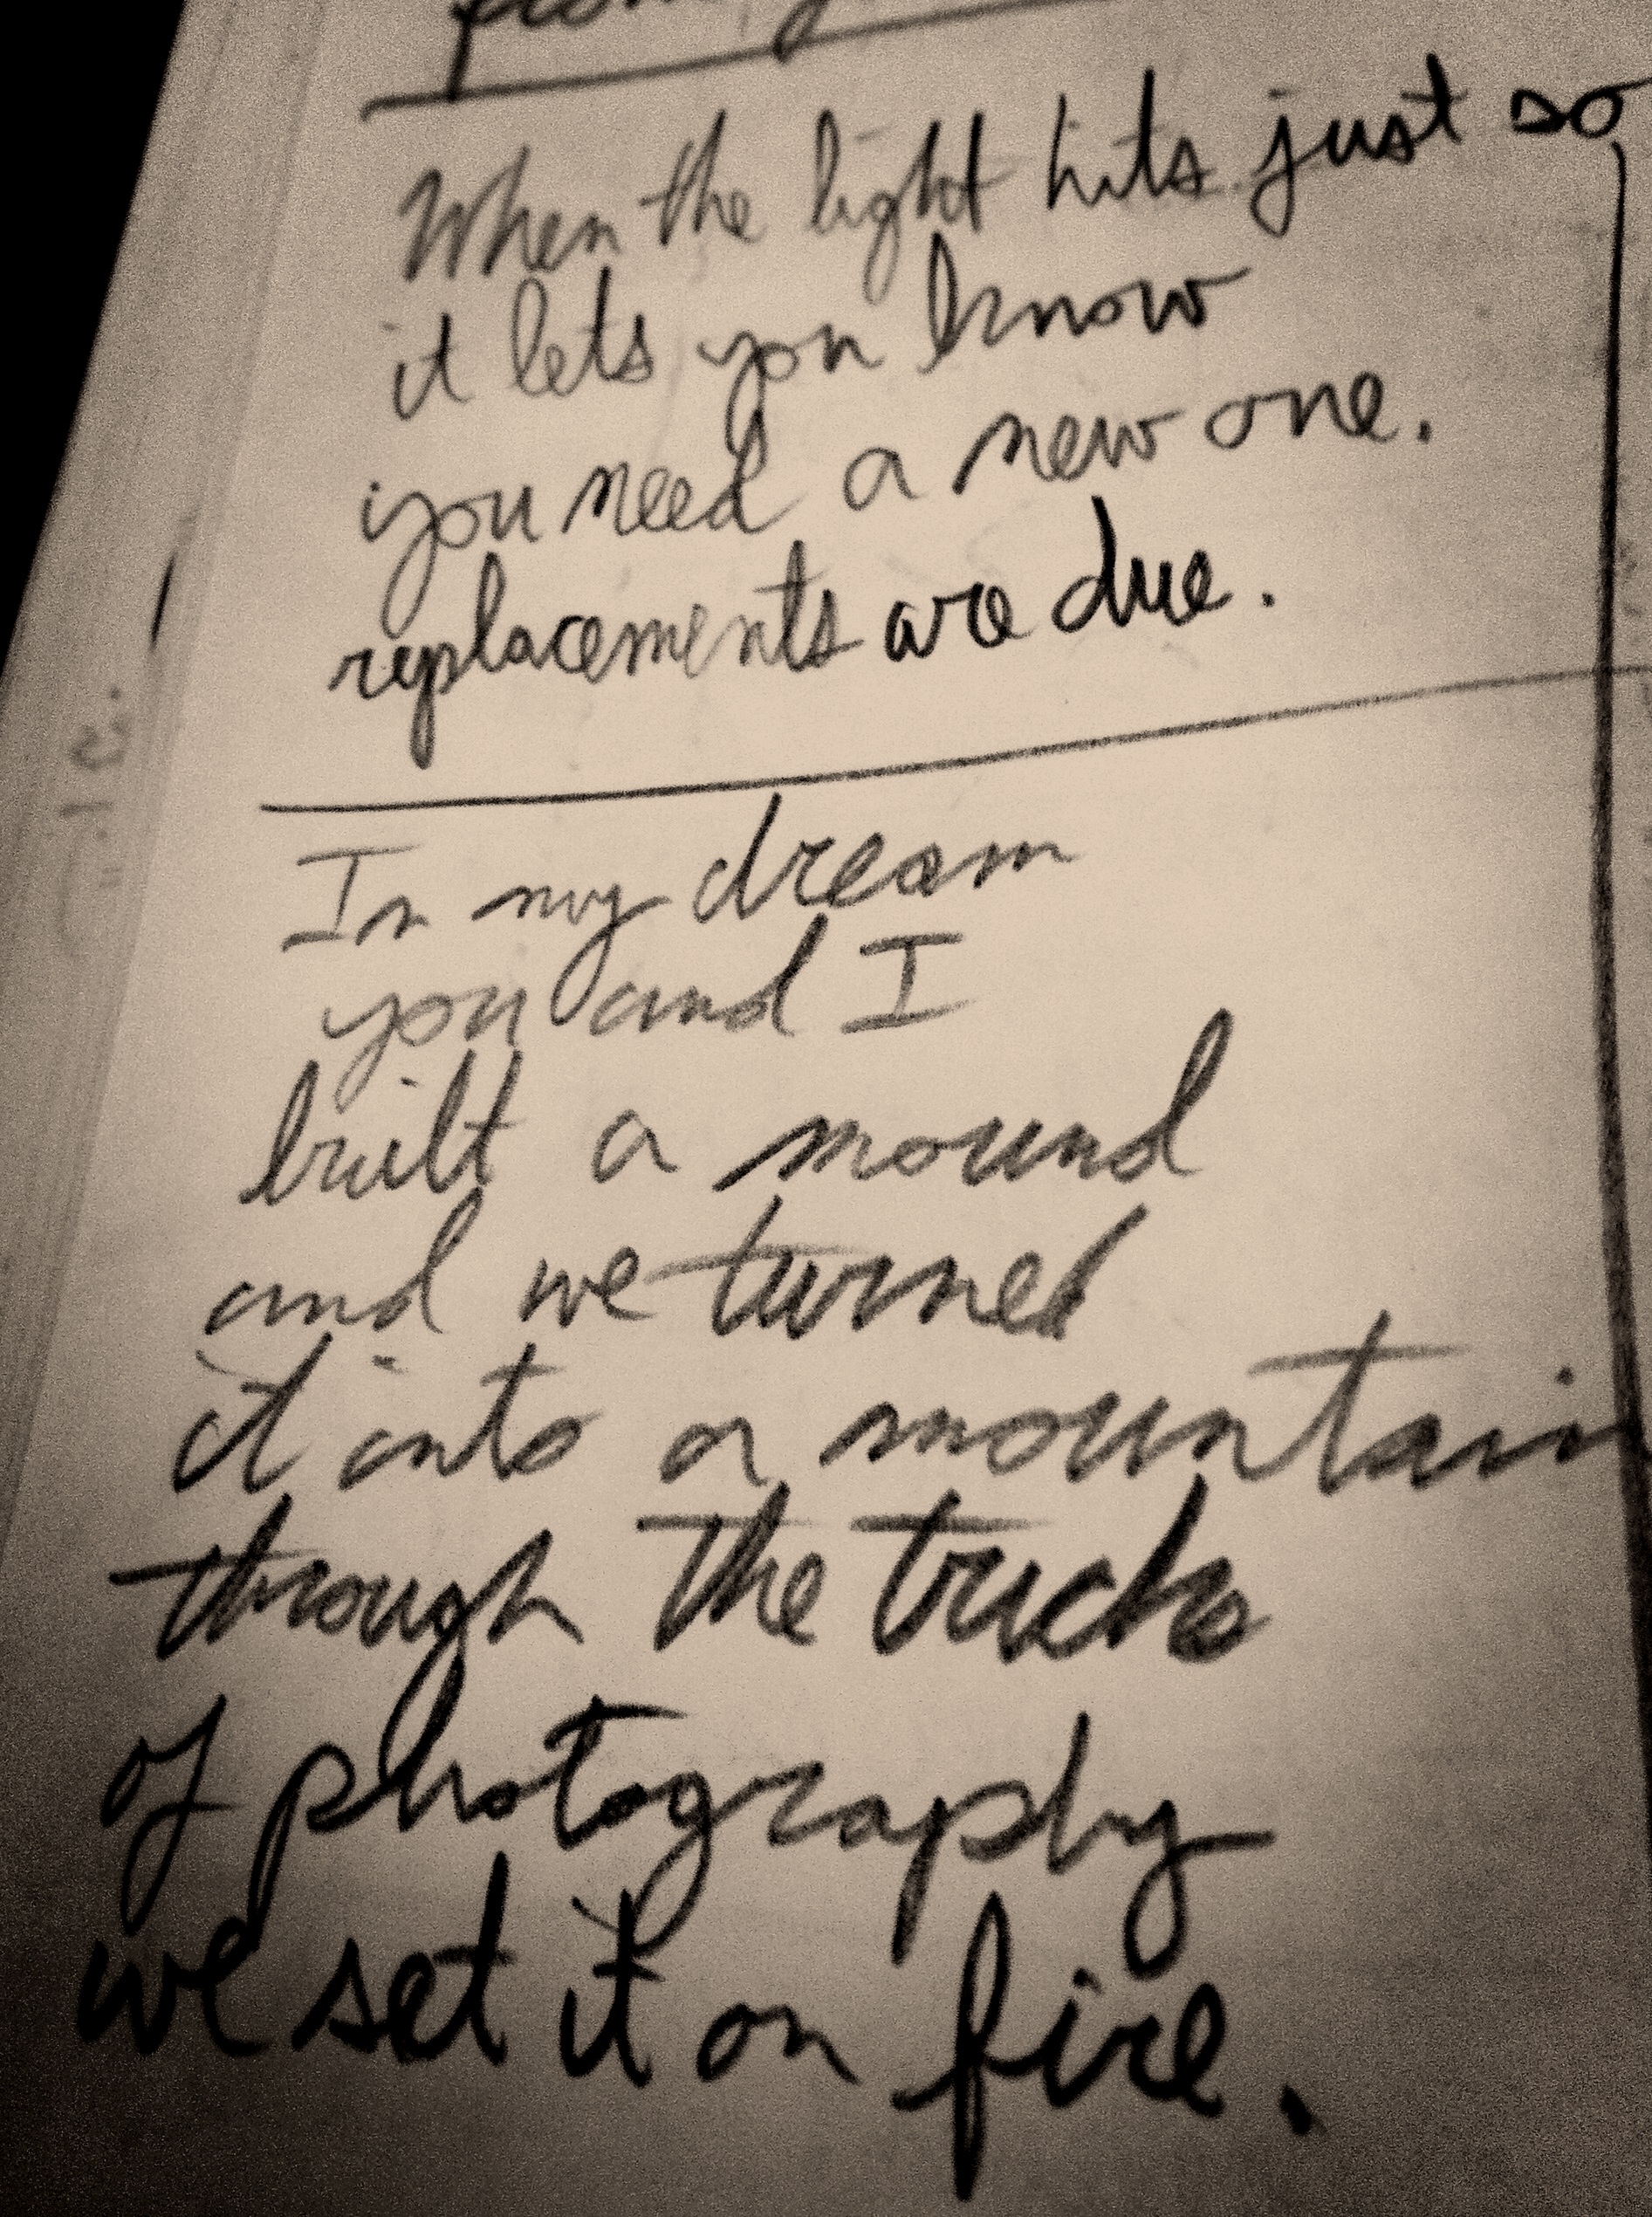 When the light hits just so
it lets you know
you need a new one.
replacements are due.
In my dream
you and I
built a mound
and we turned
it into a mountain
through the tricks
of photography
we set it on fire.